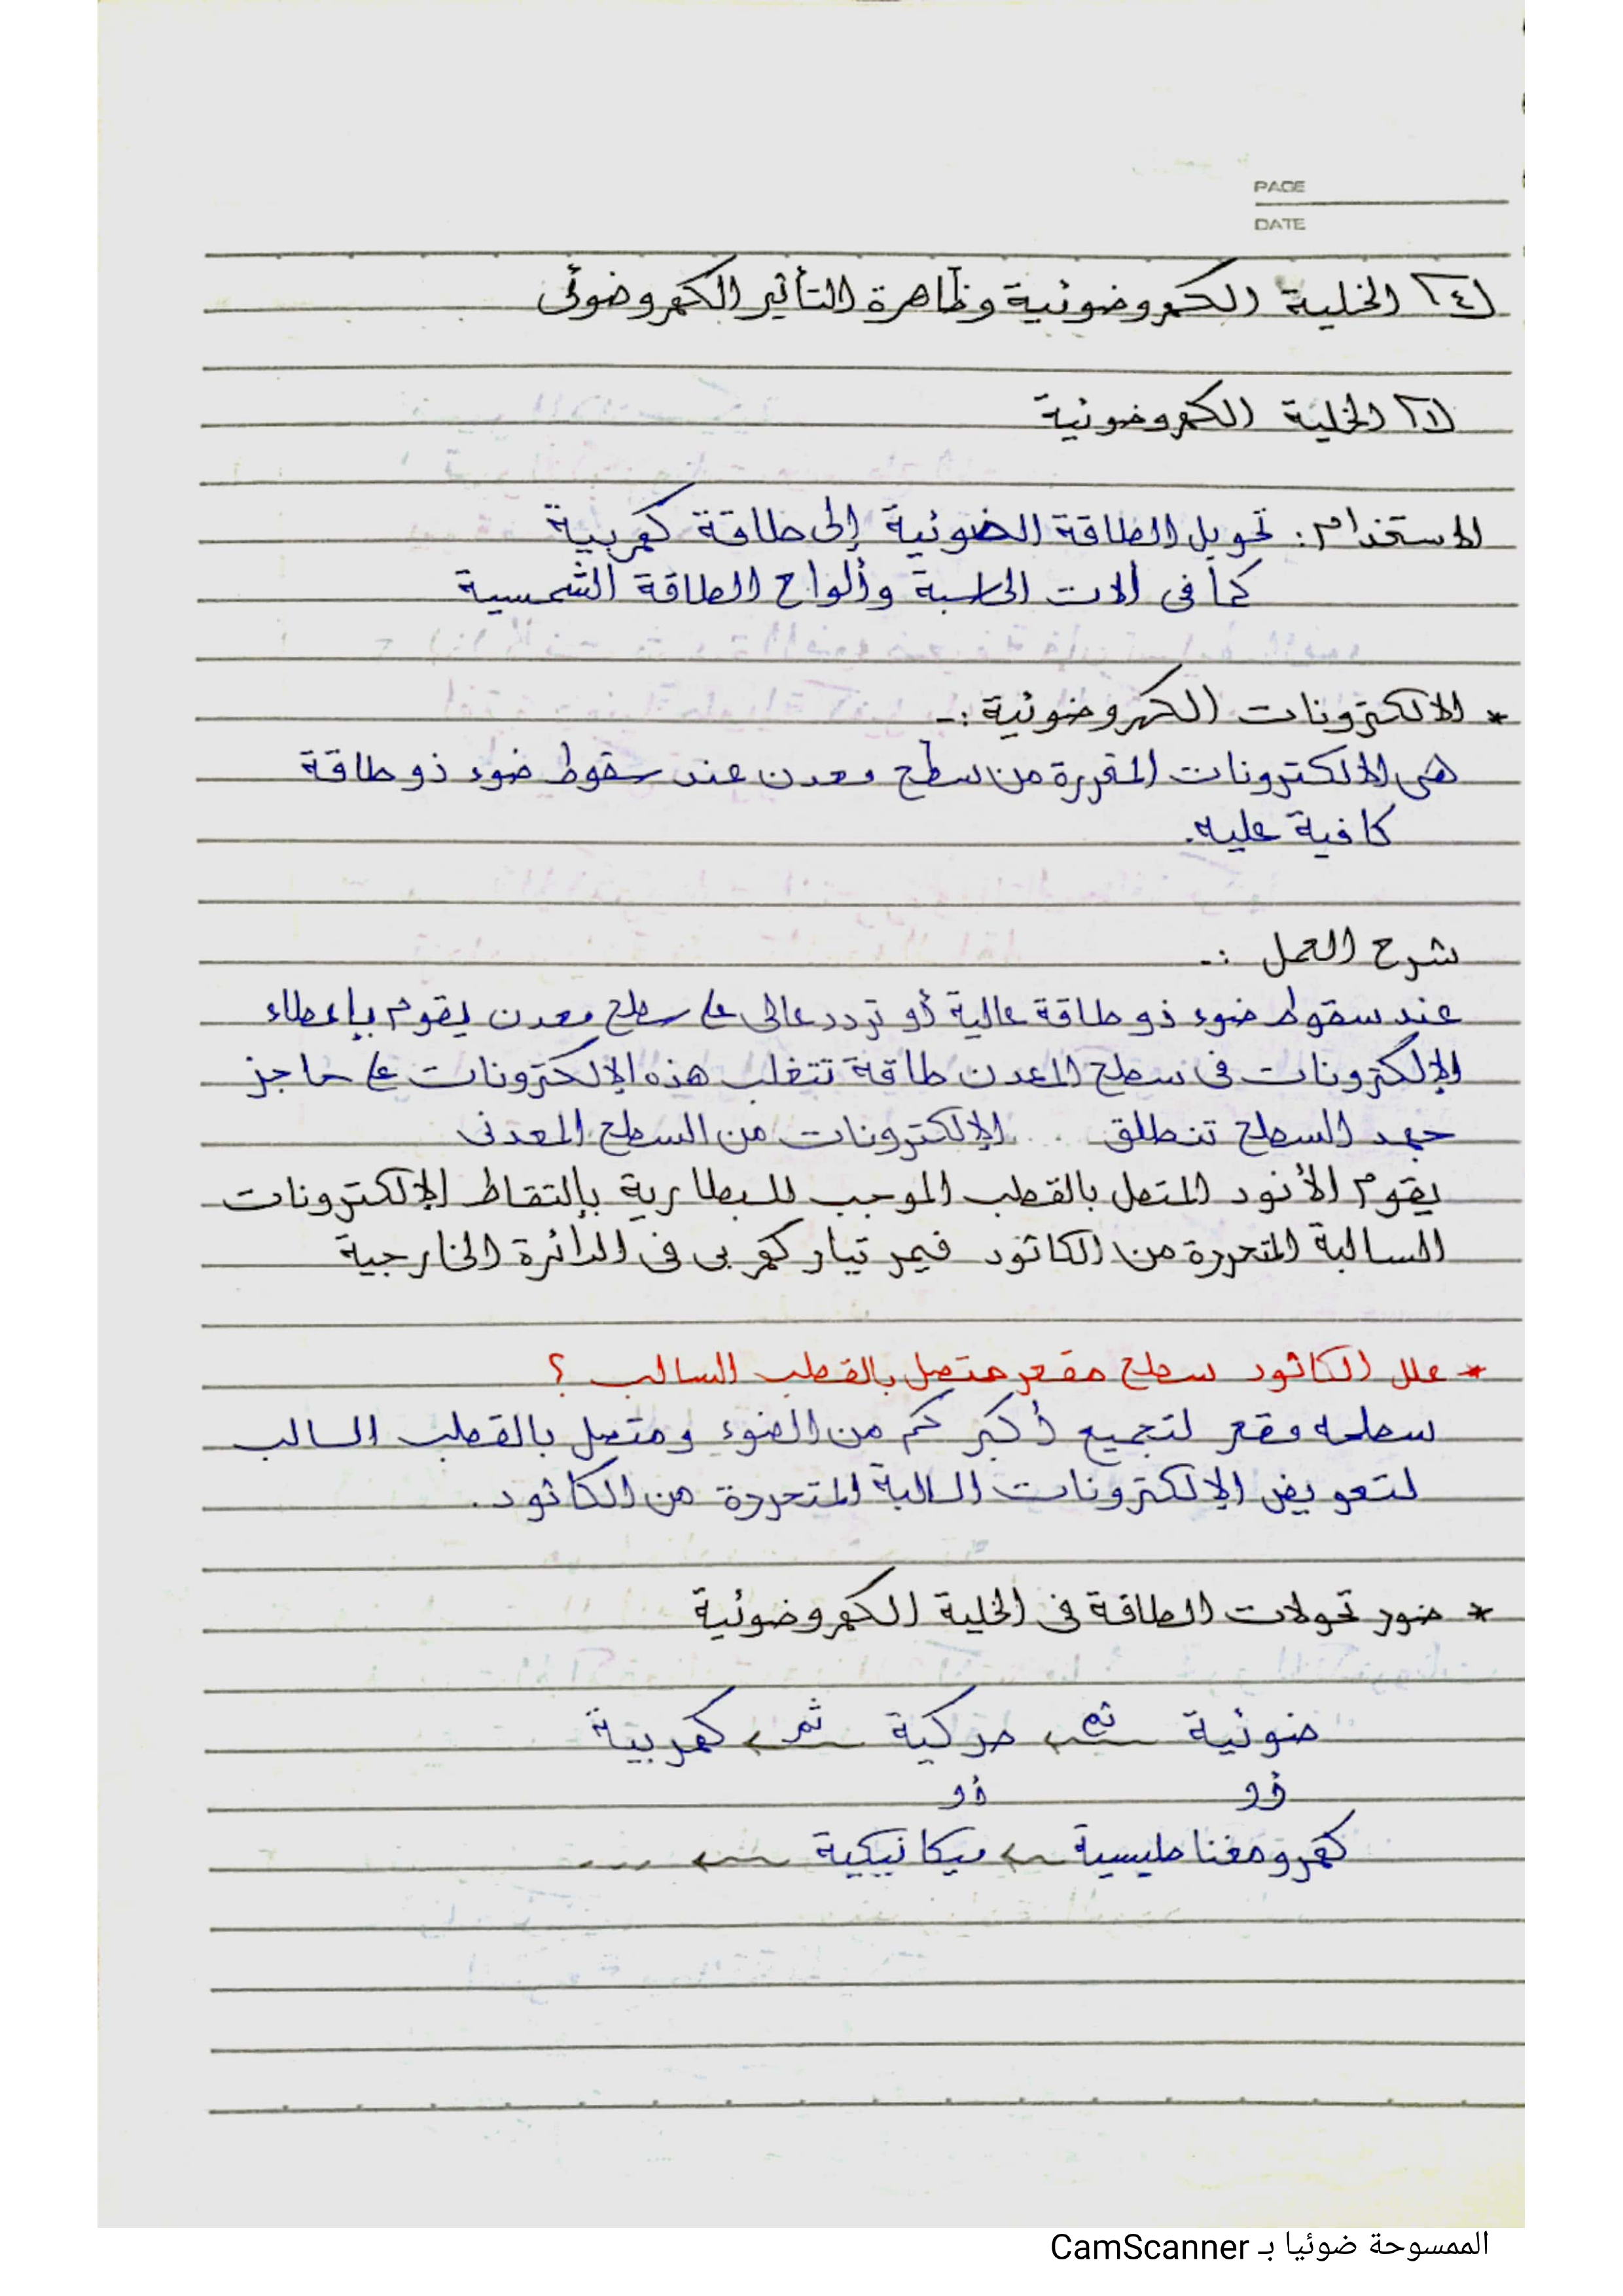 PAGE
DATE
(٤) الخلية الكهروضوئية وظاهرة التأثير الكهروضوئى
(١) الخلية الكهروضوئية
الاستخدام: تحويل الطاقة الضوئية إلى طاقة كهربية
كما فى ألات الحاسبة وألواح الطاقة الشمسية
* الالكترونات الكهروضوئية :-
هى الالكترونات المتحررة من سطح معدن عند سقوط ضوء ذو طاقة
كافية عليه.
شرح العمل :-
عند سقوط ضوء ذو طاقة عالية أو تردد عالى على سطح معدن يقوم بإعطاء
الإلكترونات فى سطح المعدن طاقة تتغلب هذه الإلكترونات على حاجز
جهد السطح تنطلق الإلكترونات من السطح المعدنى
يقوم الأنود المتصل بالقطب الموجب للبطارية بإلتقاط الإلكترونات
السالبة المتحررة من الكاثود فيمر تيار كهربى فى الدائرة الخارجية
* علل الكاثود سطح مقعر متصل بالقطب السالب ؟
سطحه مقعر لتجميع أكبر كم من الضوء ومتصل بالقطب السالب
لتعويض الإلكترونات السالبة المتحررة من الكاثود.
* صور تحولات الطاقة فى الخلية الكهروضوئية
ضوئية ثم ← حركية ثم ← كهربية
أو أو
كهرومغناطيسية ← ميكانيكية ← ...
الممسوحة ضوئيا بـ CamScanner